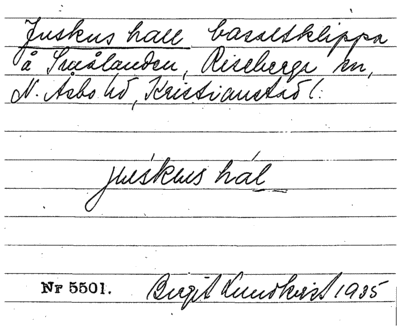 Juskus hall basaltklippa
å Smålanden, Riseberga sn,
N. Åsbo hd, Kristianstad l:
juskus hál
Nr 5501. Birgit Lundkvist 1935